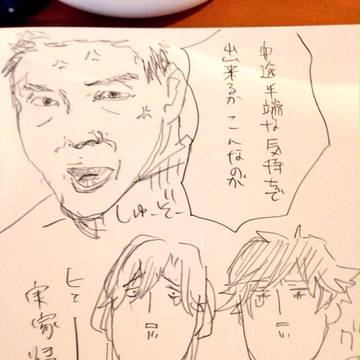 中途半端な気持で
出来るか こんなのが
しゅーぞー
ヒェー
実家